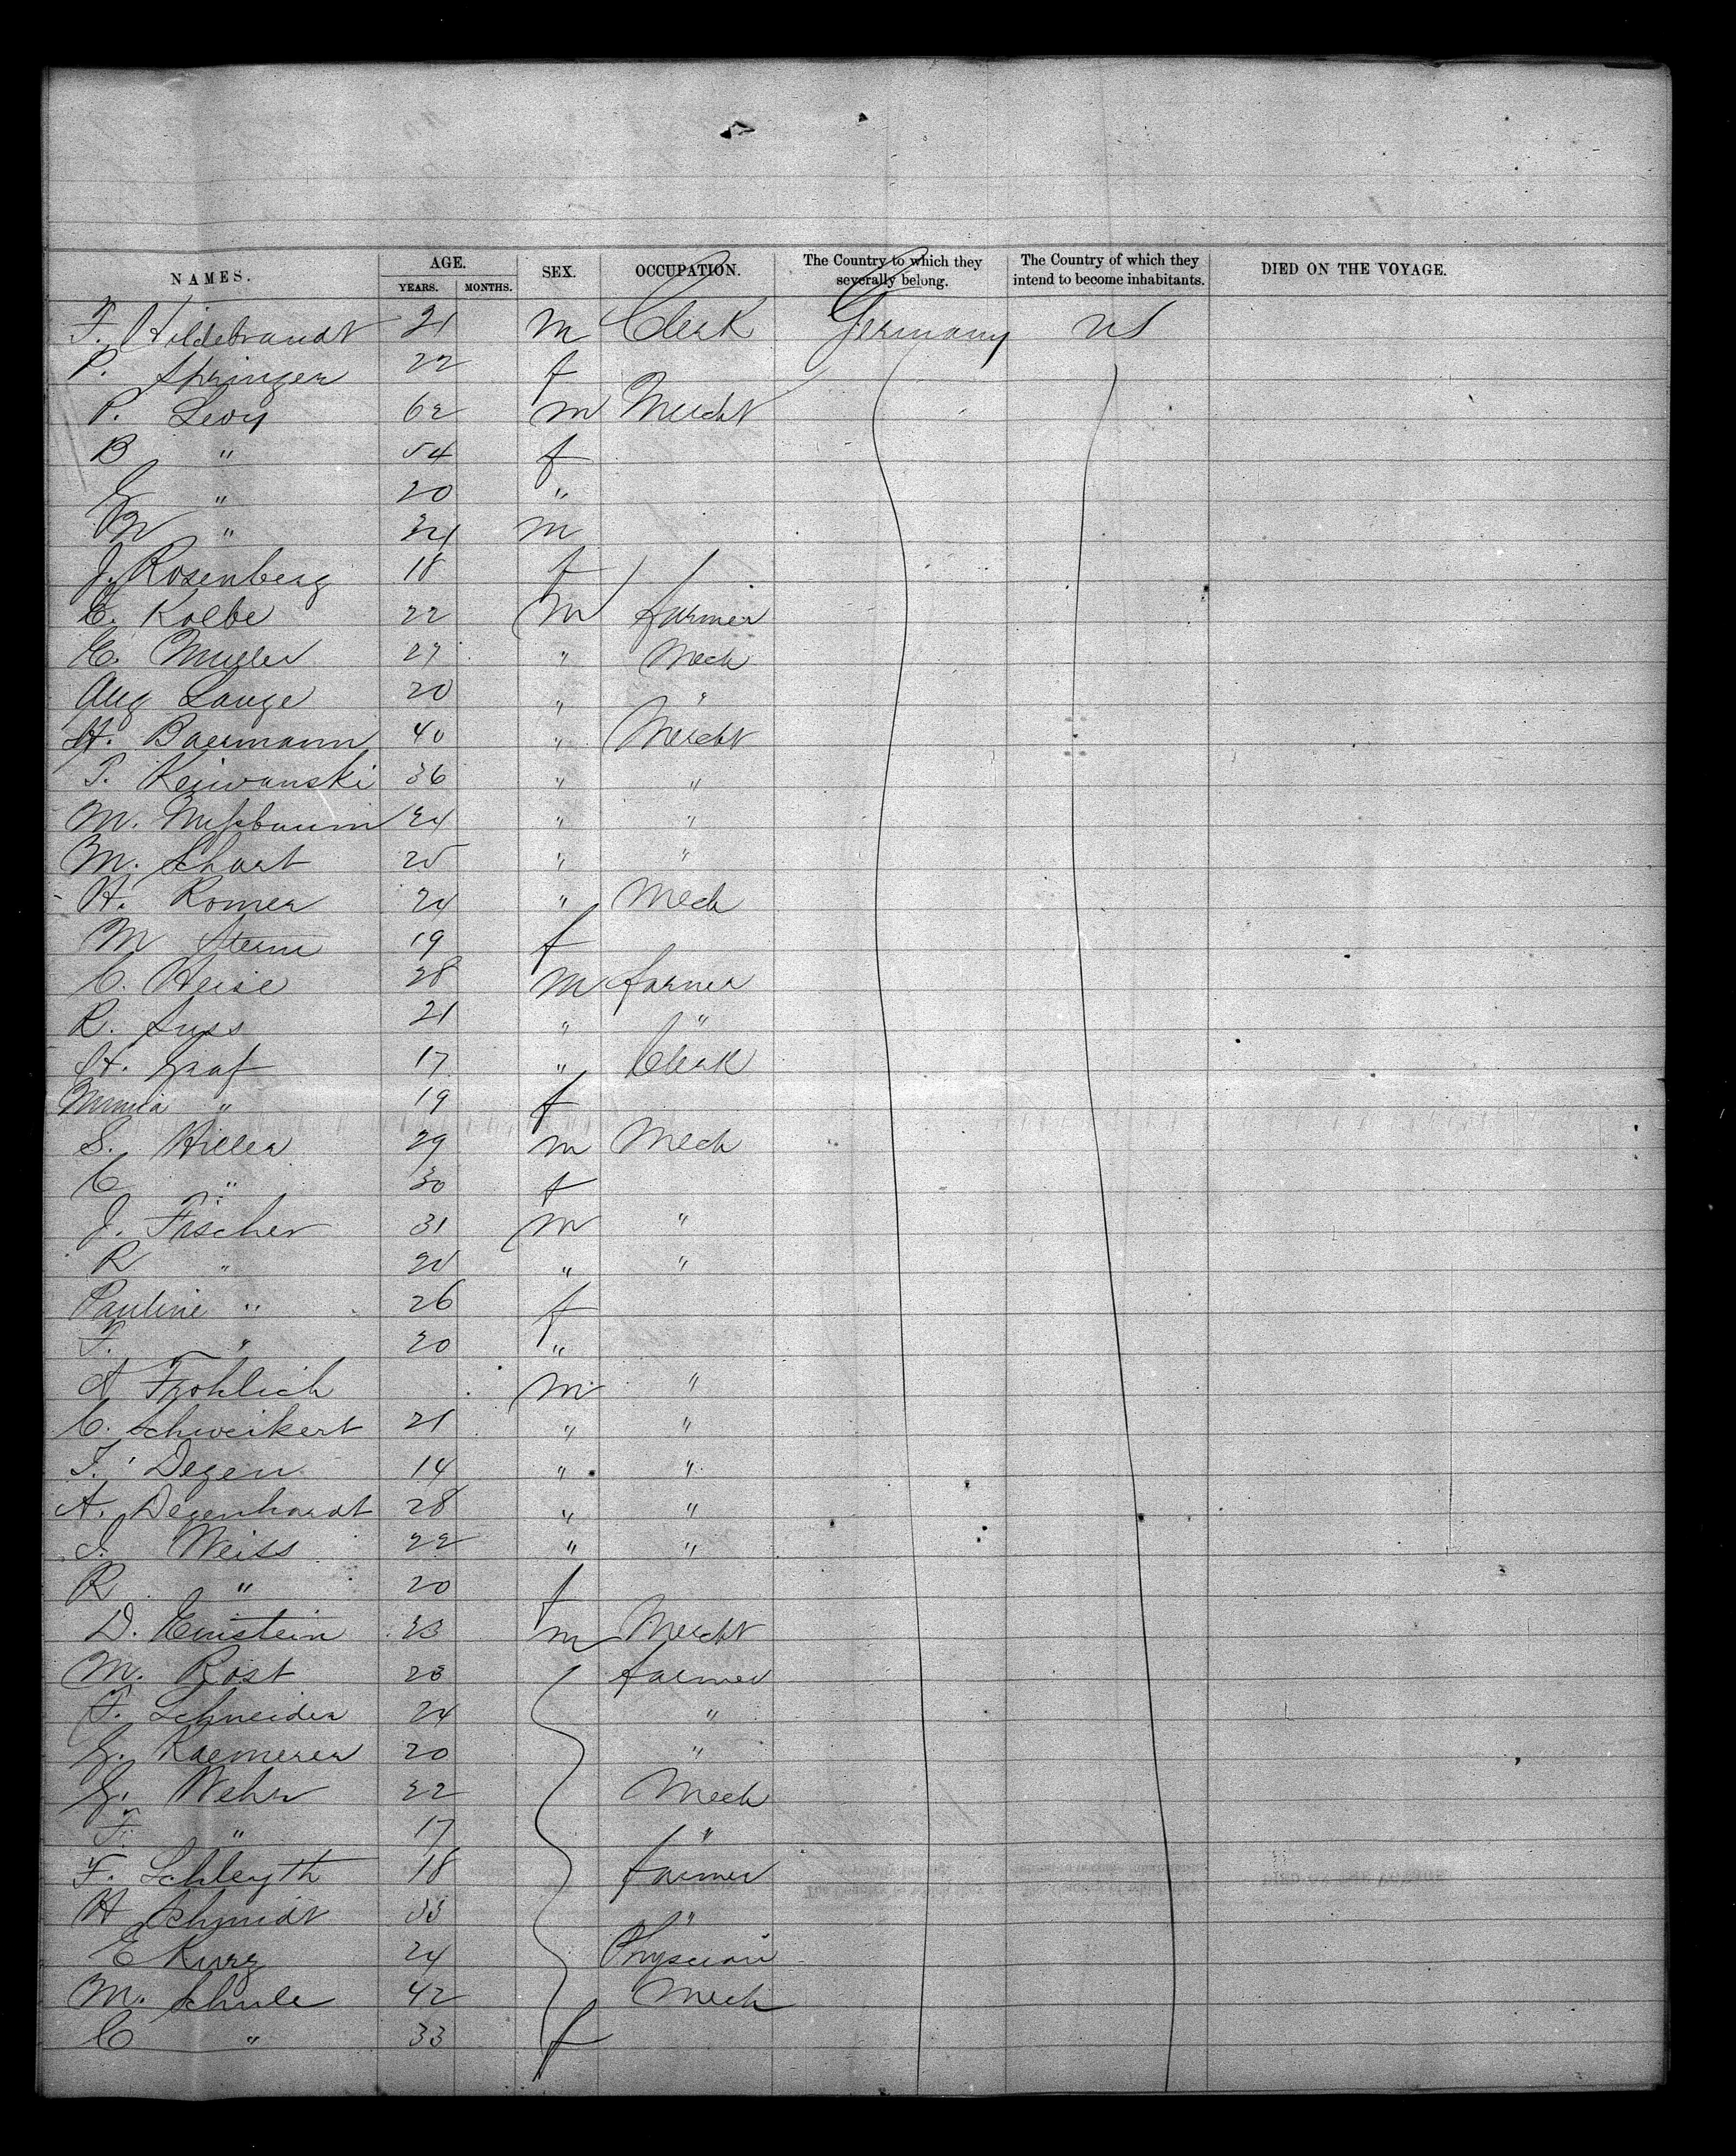 NAMES. AGE. YEARS. MONTHS. SEX. OCCUPATION. The Country to which they severally belong. The Country of which they intend to become inhabitants. DIED ON THE VOYAGE.
F. Hildebrandt 21 m Clerk Germany US
P. Springer 22 f
P. Levy 62 m Mercht
B " 54 f
G " 20 "
M " 24 m
J. Rosenberg 18 f
C. Kolbe 22 m farmer
E. Muller 27 " Mech
Aug Lange 20 " "
H. Baermann 40 " Mercht
T. 36 " "
M. Nußbaum 24 " "
M. Schart 25 " "
H. Romer 24 " Mech
M Sterm 19 f
C. Heise 28 m farmer
R. Suss 21 " "
H. Graf 17 " Clerk
" 19 f
S. Hiller 29 m Mech
C " 30 f
J. Fischer 31 m "
R " 20 " "
Pauline " 26 f
F. " 20 "
A Frohlich m "
C. Schweikert 21 " "
F. Degen 14 " "
A. Degenhardt 28 " "
J. Weiss 22 " "
R " 20 f
D. Einstein 23 m Mercht
M. Rost 23 farmer
F. Schneider 24 "
G. Kaemerer 20 "
G. Wehr 22 Mech
F. " 17 "
F. Schleyth 18 farmer
H Schmidt 33 "
E Kurz 24 Physician
M. Schule 42 Mech
C " 33 f